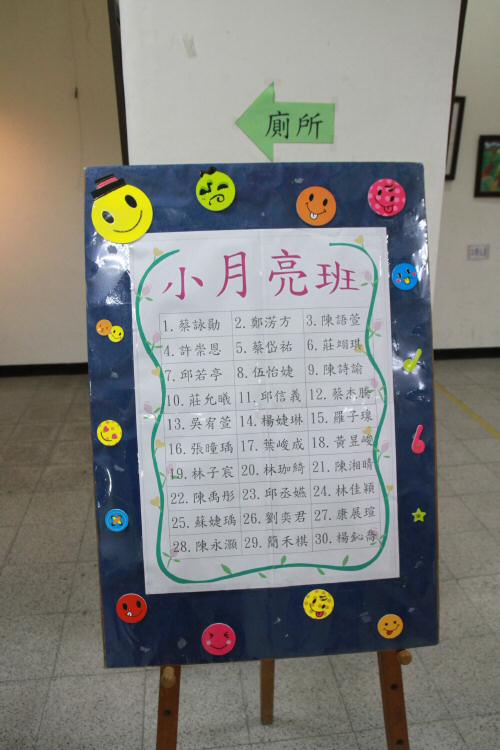 廁所
小月亮班
1. 蔡詠勛 2. 鄭芳方 3. 陳語萱
4. 許崇恩 5. 蔡岱祐 6. 莊翊琪
7. 邱若亭 8. 伍怡婕 9. 陳詩諭
10. 莊允曦 11. 邱信義 12. 蔡杰騰
13. 吳宥萱 14. 楊婕琳 15. 羅子瑔
16. 張瞳瑀 17. 葉峻成 18. 黃昱峻
19. 林子宸 20. 林珈綺 21. 陳湘晴
22. 陳禹彤 23. 邱丞嬿 24. 林佳穎
25. 蘇婕瑀 26. 劉奕君 27. 康展瑄
28. 陳永灝 29. 簡禾棋 30. 楊鈊喬